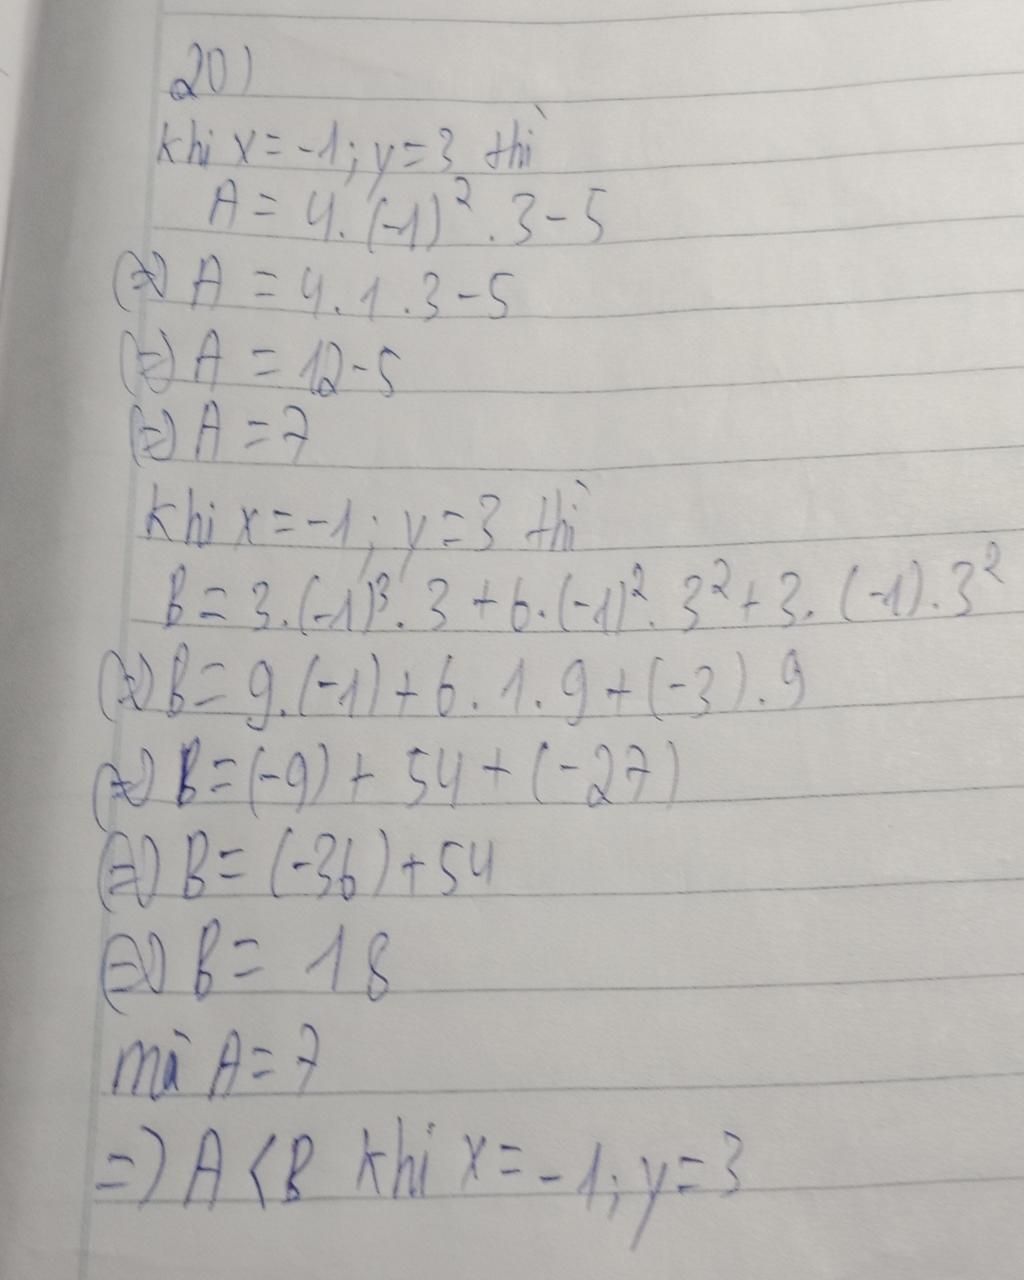 20)
khi x = -1; y = 3 thì
A = 4. (-1)² . 3 - 5
(=) A = 4. 1 . 3 - 5
(=) A = 12 - 5
(=) A = 7
khi x = -1; y = 3 thì
B = 3. (-1)³. 3 + 6. (-1)². 3² + 3. (-1). 3²
(=) B = 9. (-1) + 6. 1. 9 + (-3). 9
(=) B = (-9) + 54 + (-27)
(=) B = (-36) + 54
(=) B = 18
mà A = 7
=) A < B khi x = -1; y = 3